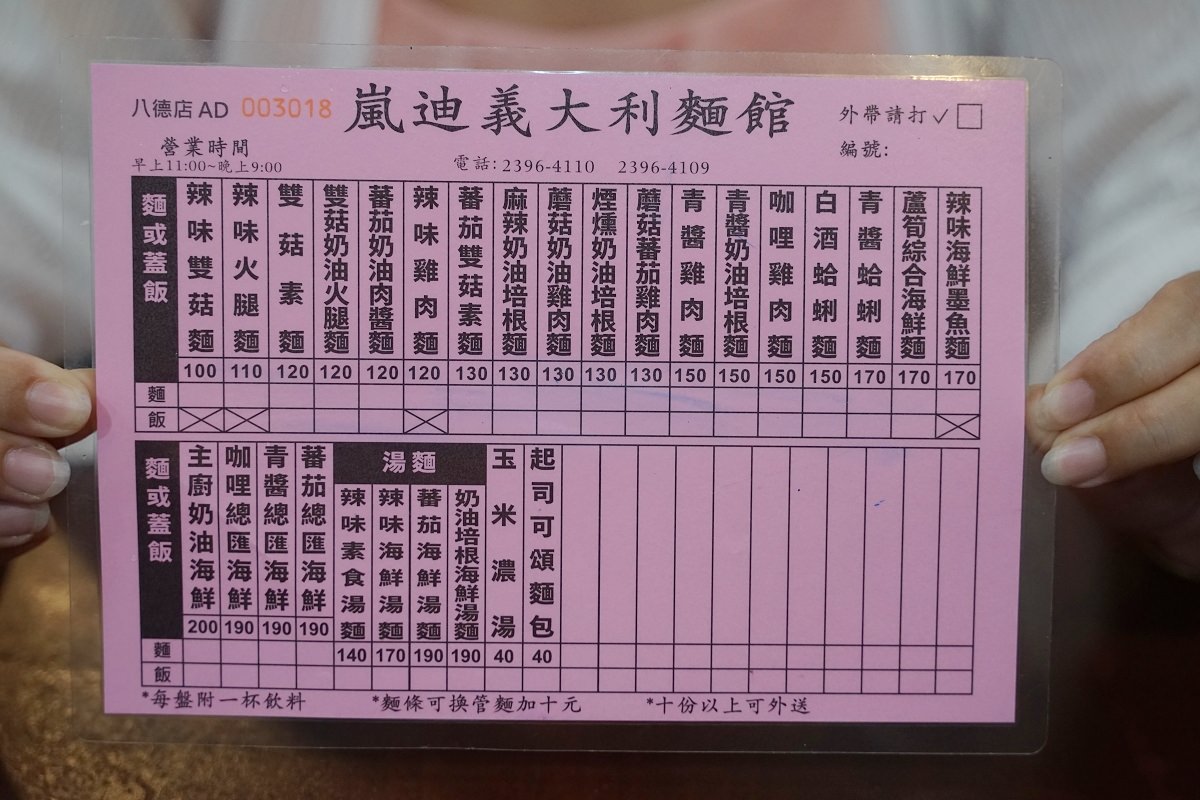 八德店 AD 003018
嵐迪義大利麵館
外帶請打✓□
營業時間
早上11:00~晚上9:00
電話:2396-4110 2396-4109
編號:
麵或蓋飯
辣味雙菇麵 100
辣味火腿麵 110
雙菇素麵 120
雙菇奶油火腿麵 120
蕃茄奶油肉醬麵 120
辣味雞肉麵 120
蕃茄雙菇素麵 130
麻辣奶油培根麵 130
蘑菇奶油雞肉麵 130
煙燻奶油培根麵 130
蘑菇蕃茄雞肉麵 130
青醬雞肉麵 150
青醬奶油培根麵 150
咖哩雞肉麵 150
白酒蛤蜊麵 150
青醬蛤蜊麵 170
蘆筍綜合海鮮麵 170
辣味海鮮墨魚麵 170
麵
飯
麵或蓋飯
主廚奶油海鮮 200
咖哩總匯海鮮 190
青醬總匯海鮮 190
蕃茄總匯海鮮 190
湯麵
辣味素食湯麵 140
辣味海鮮湯麵 170
蕃茄海鮮湯麵 190
奶油培根海鮮湯麵 190
玉米濃湯 40
起司可頌麵包 40
麵
飯
*每盤附一杯飲料
*麵條可換管麵加十元
*十份以上可外送